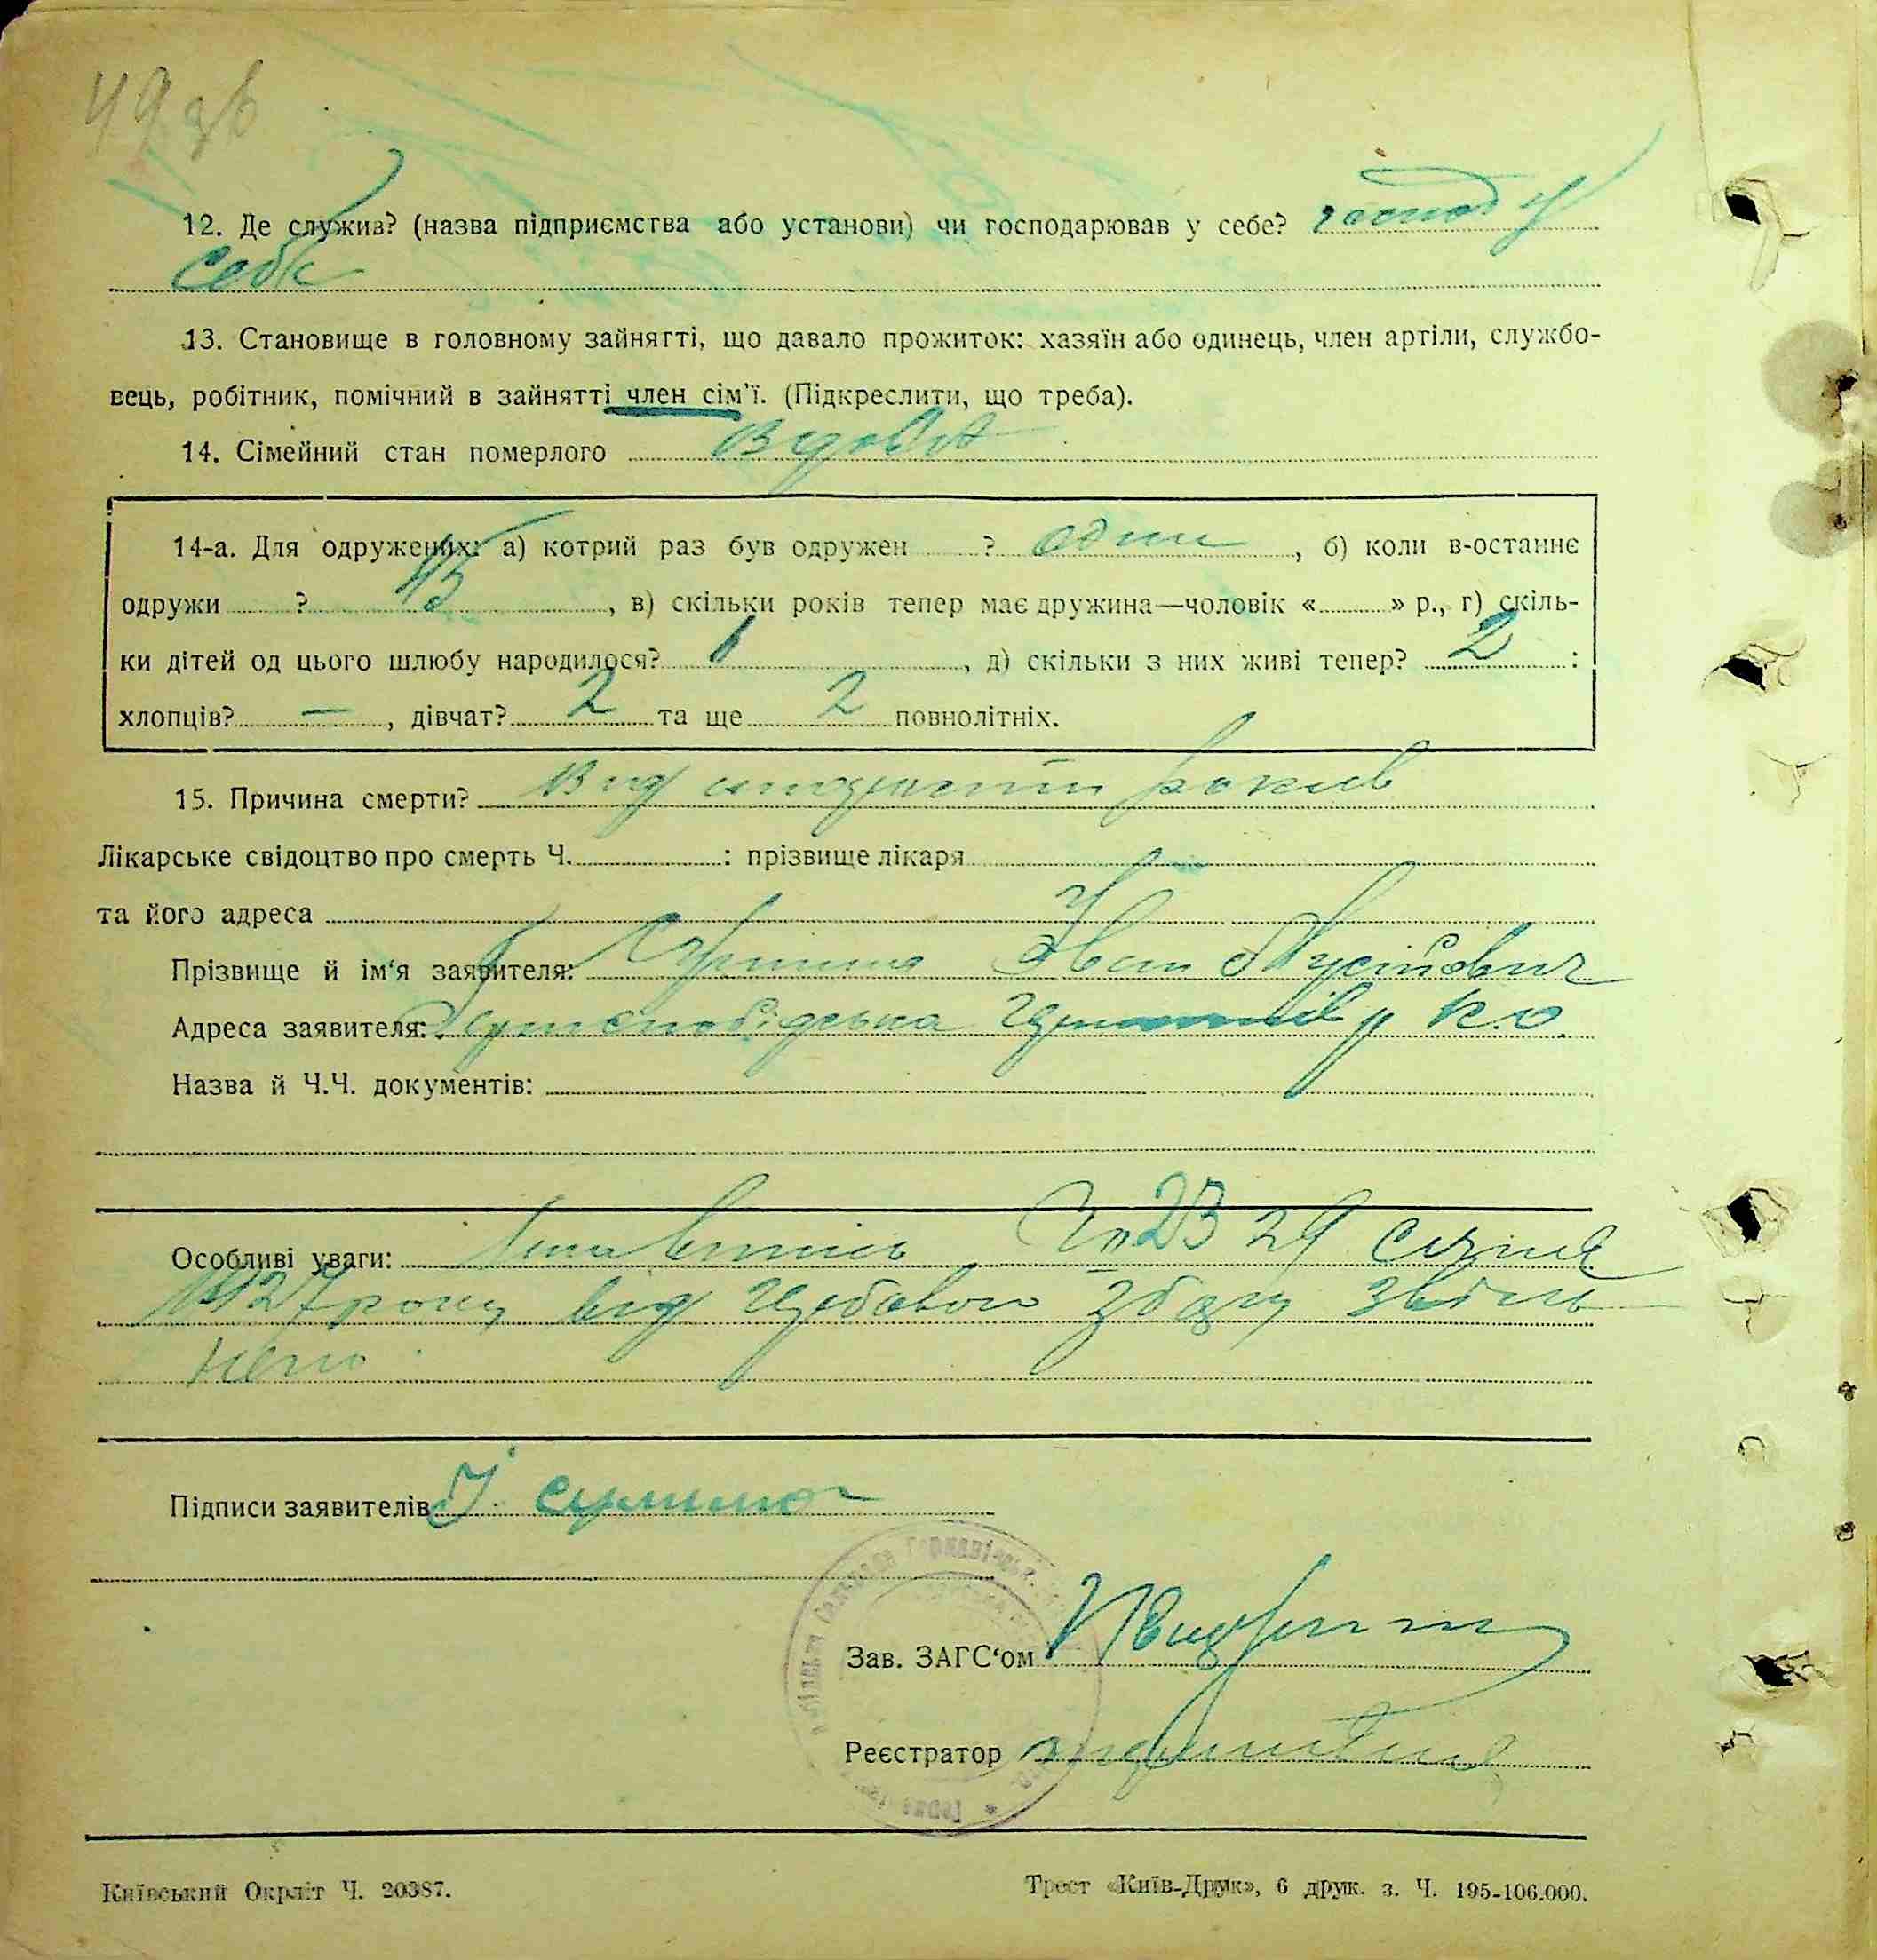 49 зв
12. Де служив? (назва підприємства або установи) чи господарював у себе? господ у
себе
13. Становище в головному зайнятті, що давало прожиток: хазяїн або одинець, член артіли, службо-
вець, робітник, помічний в зайнятті член сім'ї. (Підкреслити, що треба).
14. Сімейний стан померлого вдова
14-а. Для одружених: а) котрий раз був одружен ? один, б) коли в-останнє
одружи ?, в) скільки років тепер має дружина—чоловік « » р., г) скіль-
ки дітей од цього шлюбу народилося?, д) скільки з них живі тепер? 2 :
хлопців? —, дівчат? 2 та ще 2 повнолітніх.
15. Причина смерти? Від років
Лікарське свідоцтво про смерть Ч. : прізвище лікаря
та його адреса
Прізвище й ім'я заявителя: Іван
Адреса заявителя: к.о.
Назва й Ч.Ч. документів:
Особливі уваги: 23 29 січня
1927 року від збору звіль
нено
Підписи заявителів І
Зав. ЗАГС'ом
Реєстратор
Київський Окрліт Ч. 20387.
Трест «Київ-Друк», 6 друк. з. Ч. 195-106.000.